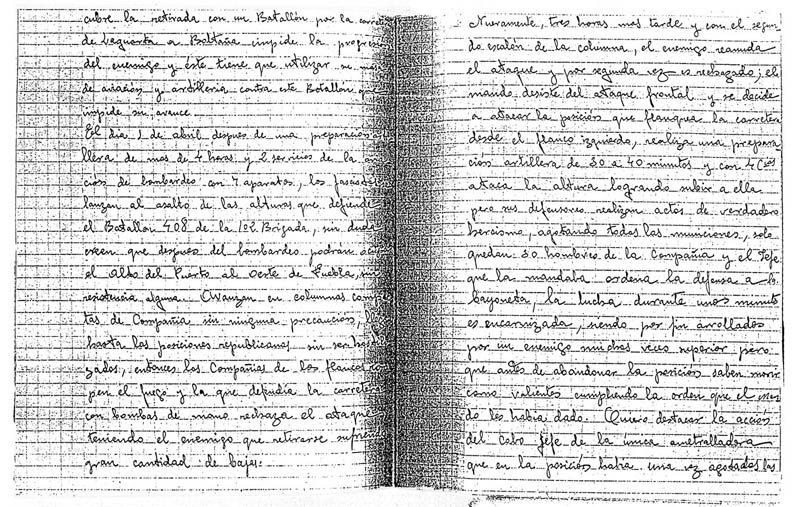 cubre la retirada con un Batallón por la carre
de Laguarta a Boltaña impide la progre
del enemigo y éste tiene que utilizar
de aviación y artillería contra este Batallón que
impide su avance
El día 1 de abril despues de una preparación
llera de mas de 4 horas y 2 servicios de la
ción de bombardeo con 7 aparatos, los fascistas
lanzan al asalto de las alturas que defiende
el Batallón 408 de la 102 Brigada, sin duda
creen que despues del bombardeo podrán
al alto del Puerto al Oeste de Fuebla, sin
resistencia alguna. Avanzan en columnas comp
tas de Compañía sin ninguna precaución,
hasta las posiciones republicanas sin ser hos
zados; entonces las Compañías de los flancos
pen el fuego y la que defendía la carrete
con bombas de mano rechaza el ataque
teniendo el enemigo que retirarse sufrien
gran cantidad de bajas.
Nuevamente, tres horas mas tarde y con el segun
do escalón de la columna, el enemigo reanuda
el ataque y por segunda vez es rechazado; el
mando desiste del ataque frontal y se decide
a atacar la posición que flanquea la carretera
desde el flanco izquierdo, realiza una prepara
ción artillera de 30 a 40 minutos y con 4 Cias
ataca la altura logrando subir a ella
pero sus defensores realizan actos de verdadero
heroismo, agotando todas las municiones, solo
quedan 30 hombres de la Compañía y el Jefe
que la mandaba ordena la defensa a la
bayoneta, la lucha durante unos minutos
es encarnizada, siendo por fin arrollados
por un enemigo muchas veces superior pero
que antes de abandonar la posición saben morir
como valientes cumpliendo la orden que el man
do les habia dado. Quiero destacar la acción
del Cabo Jefe de la única ametralladora
que en la posición había una vez agotados las